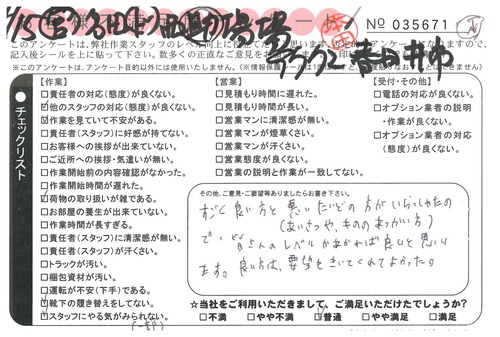 No 035671
このアンケートは、弊社作業スタッフのレベル向上に
記入後シールを上に貼って下さい。数多くの正直なご意見を
※このアンケートは、アンケート目的以外には使用いたしません。
チェックリスト
【作業】
□責任者の対応(態度)が良くない。
□他のスタッフの対応(態度)が良くない。
□作業を見ていて不安がある。
□責任者(スタッフ)に好感が持てない。
□お客様への挨拶が出来ていない。
□ご近所への挨拶・気遣いが無い。
□作業開始前の内容確認がなかった。
□作業開始時間が遅れた。
□荷物の取り扱いが雑である。
□お部屋の養生が出来ていない。
□作業時間が長すぎる。
□責任者(スタッフ)に清潔感が無い。
□責任者(スタッフ)が汗くさい。
□トラックが汚い。
□梱包資材が汚い。
□運転が不安(下手)である。
□靴下の履き替えをしてない。
□スタッフにやる気がみられない。
(一部)
【営業】
□見積もり時間に遅れた。
□見積もり時間が長い。
□営業マンに清潔感が無い。
□営業マンが煙草くさい。
□営業マンが汗くさい。
□営業態度が良くない。
□営業の説明と作業が一致してない。
【受付・その他】
□電話の対応が良くない。
□オプション業者の説明
・作業が良くない。
□オプション業者の対応
(態度)が良くない。
その他、ご意見・ご要望等ありましたらお書き下さい。
すごく良い方と悪いたいどの方がいらっしゃたの
(あいさつや、もののあつかい方)
で、皆さんのレベルがあがれば良いと思い
ます。良い方は、要望をきいてくれてよかった。
☆当社をご利用いただきまして、ご満足いただけたでしょうか?
□不満 □やや不満 □普通 □やや満足 □満足